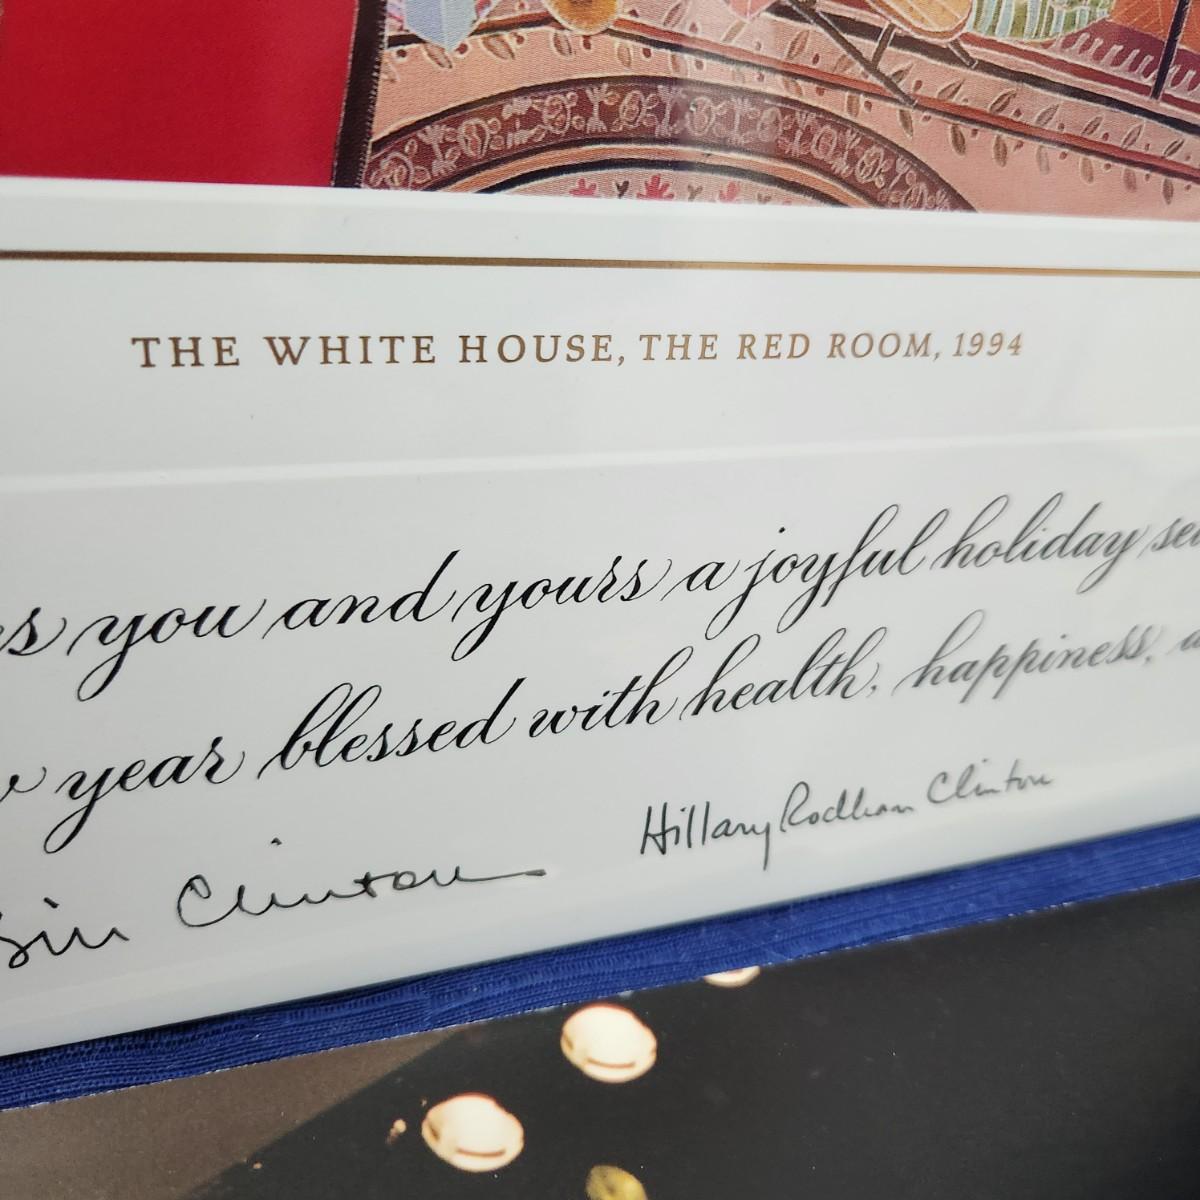 THE WHITE HOUSE, THE RED ROOM, 1994
you and yours a joyful holiday
year blessed with health, happiness,
Bill Clinton Hillary Rodham Clinton